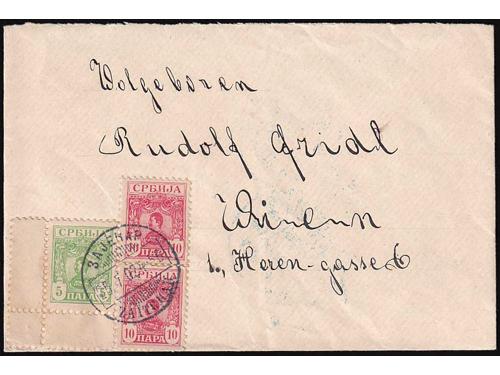 Wolgeboren
Rudolf Gridl
Wien
1., Heren-gasse 6
СРБИЈА
10 10
ПАРА
СРБИЈА
5
ПАРА
СРБИЈА
10 10
ПАРА
ЗАЈЕЧАР